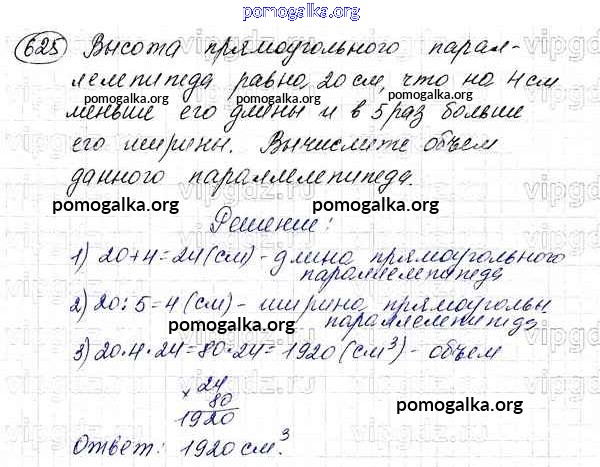 pomogalka.org
625 Высота прямоугольного парал-
лелепипеда равна 20 см, что на 4 см
pomogalka.org
pomogalka.org
меньше его длины и в 5 раз больше
pomogalka.org
его ширины. Вычислите объем
данного параллелепипеда.
pomogalka.org
pomogalka.org
Решение:
1) 20+4=24(см) - длина прямоугольного
параллелепипеда
2) 20:5=4(см) - ширина прямоугольн.
параллелепипеда
pomogalka.org
3) 20·4·24=80·24=1920(см³) - объем
× 24
80
1920
pomogalka.org
Ответ: 1920 см³.
vipgdz.ru